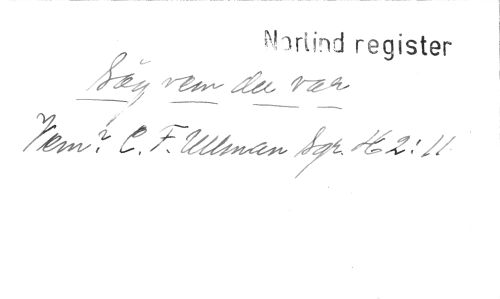 Norlind register
Säg vem du var
Vem? C. F. Ullman Sgr. H 2:11